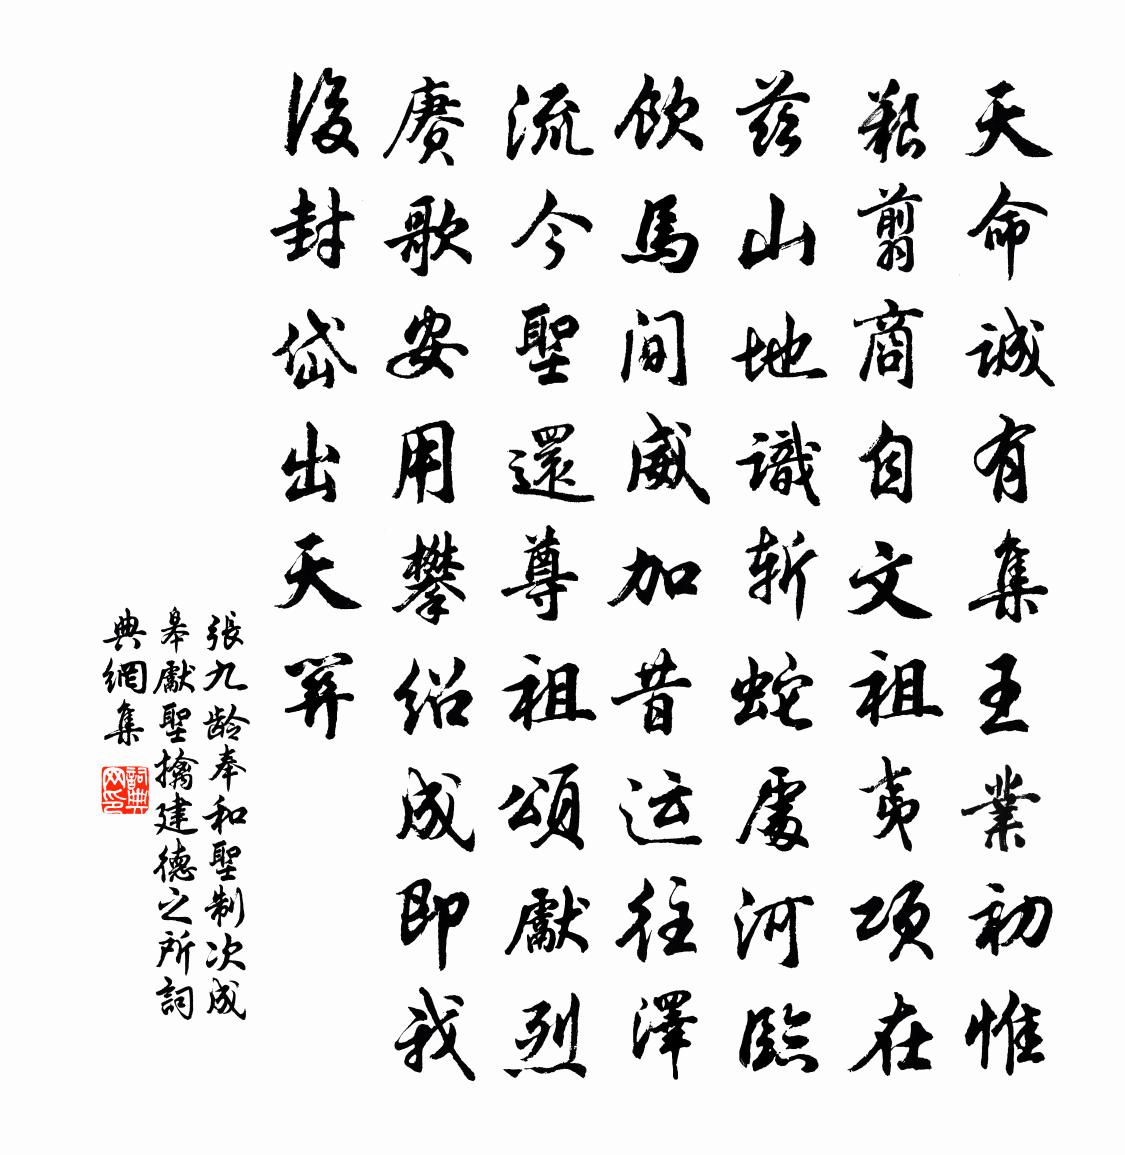 天命誠有集王業初惟
艱翦商自文祖夷項在
茲山地識斬蛇處河臨
飲馬間威加昔运往澤
流今聖還尊祖頌獻烈
赓歌安用攀绍成即我
後封岱出天關
張九龄奉和聖制次成
皋獻聖擒建德之所詞
典網集
詞典网印